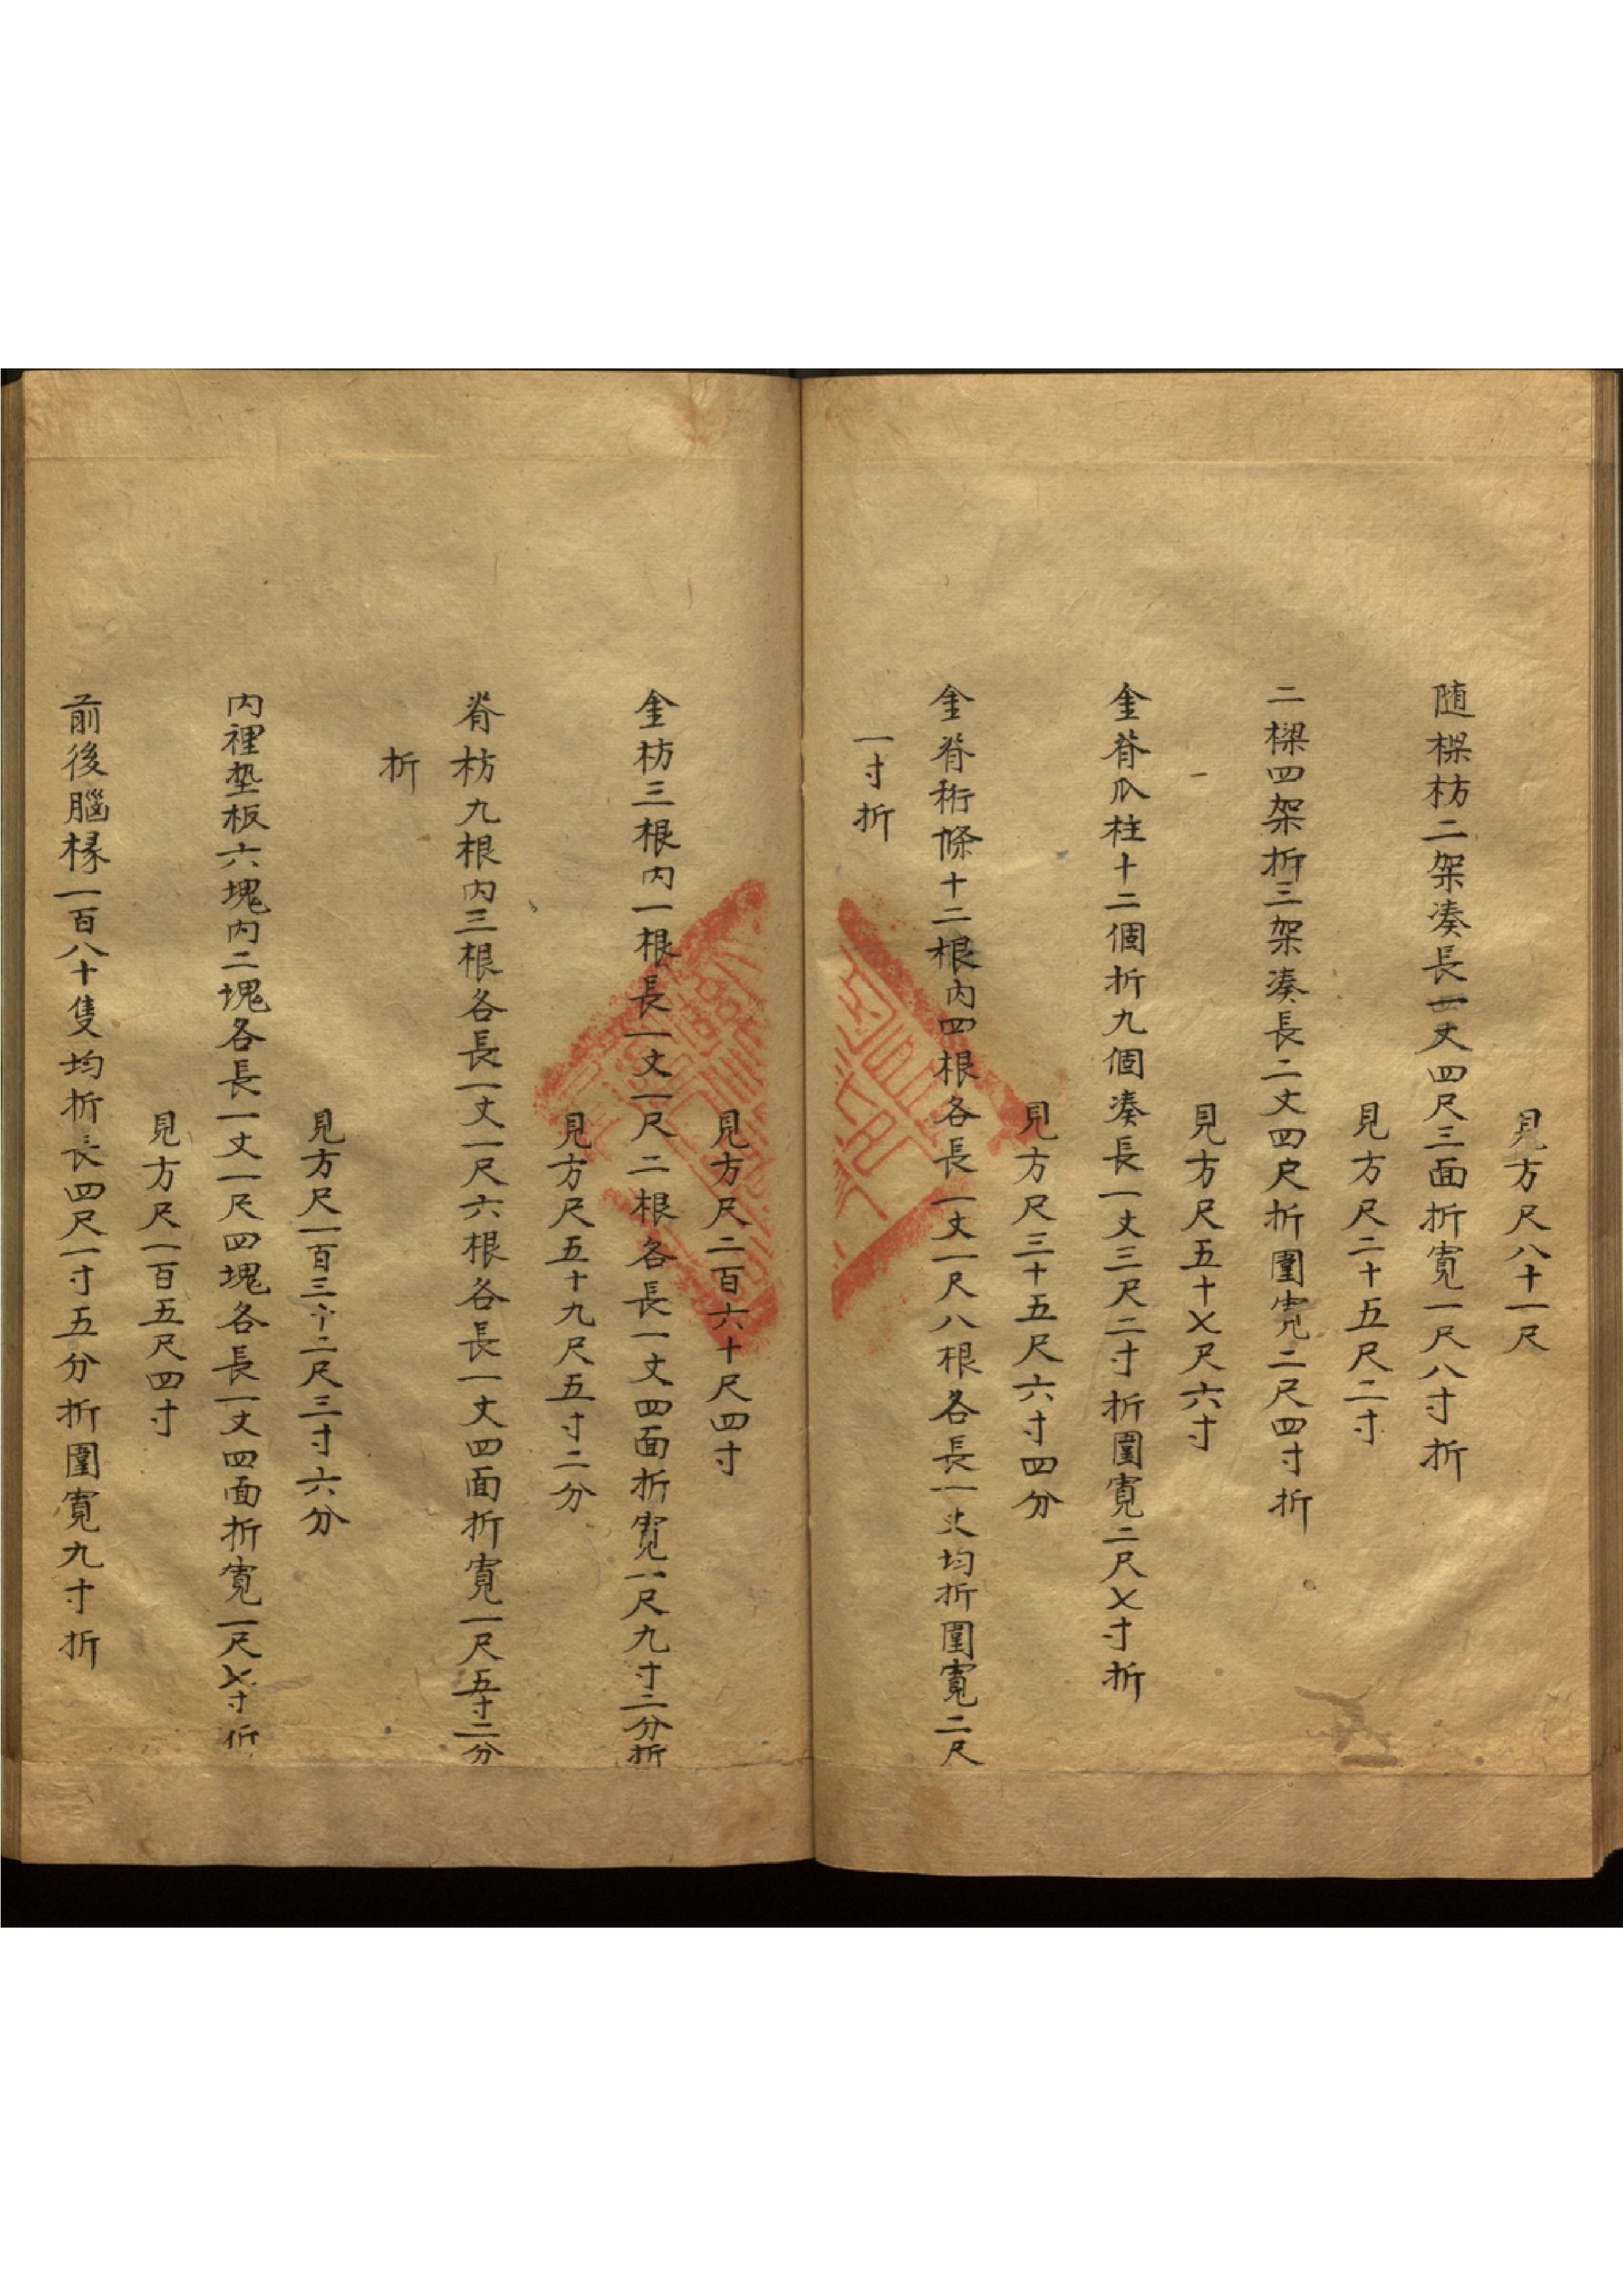 見方尺八十一尺
随樑枋二架凑長一丈四尺三面折寬一尺八寸折
見方尺二十五尺二寸
二樑四架折三架凑長二丈四尺折圍寬二尺四寸折
見方尺五十七尺六寸
金脊瓜柱十二個折九個凑長一丈三尺二寸折圍寬二尺七寸折
見方尺三十五尺六寸四分
金脊桁條十二根內四根各長一丈一尺八根各長一丈均折圍寬二尺
一寸折
見方尺二百六十尺四寸
金枋三根内一根長一丈一尺二根各長一丈四面折寬一尺九寸二分折
見方尺五十九尺五寸二分
脊枋九根内三根各長一丈一尺六根各長一丈四面折寬一尺五寸二分
折
見方尺一百三十二尺三寸六分
内裡墊板六塊内二塊各長一丈一尺四塊各長一丈四面折寬一尺七寸折
見方尺一百五尺四寸
前後腦椽一百八十隻均折長四尺一寸五分折圍寬九寸折